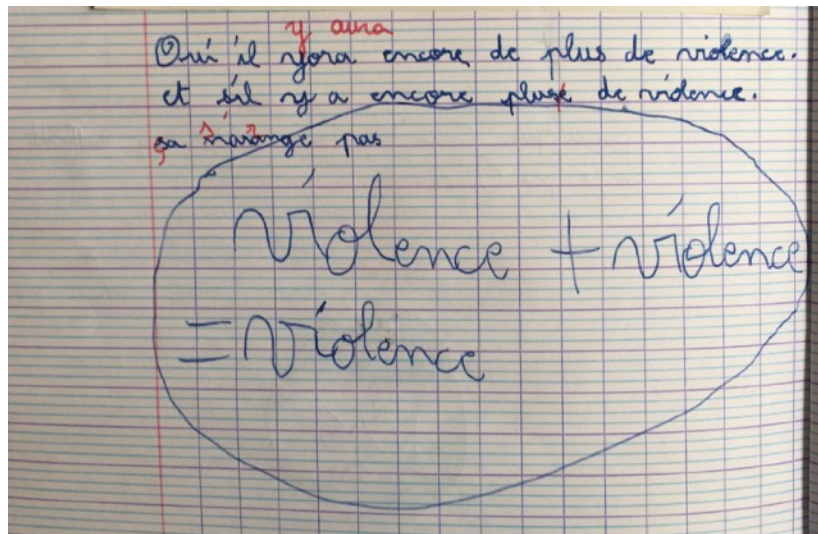 y aura
Oui il yora encore de plus de violence.
et sil y a encore pluse de violence.
ça n'arange pas
violence + violence
= violence